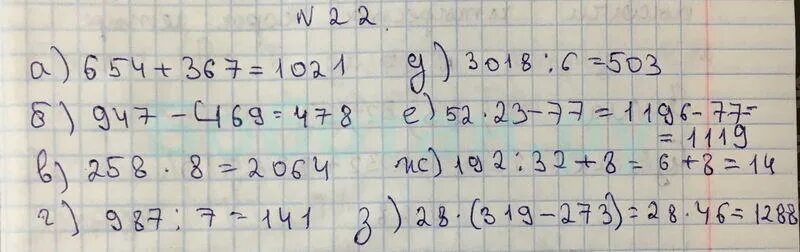 N 22.
а) 654 + 367 = 1021
б) 947 - 469 = 478
в) 258 · 8 = 2064
г) 987 : 7 = 141
д) 3018 : 6 = 503
е) 52 · 23 - 77 = 1196 - 77 =
= 1119
ж) 192 : 32 + 8 = 6 + 8 = 14
з) 28 · (319 - 273) = 28 · 46 = 1288